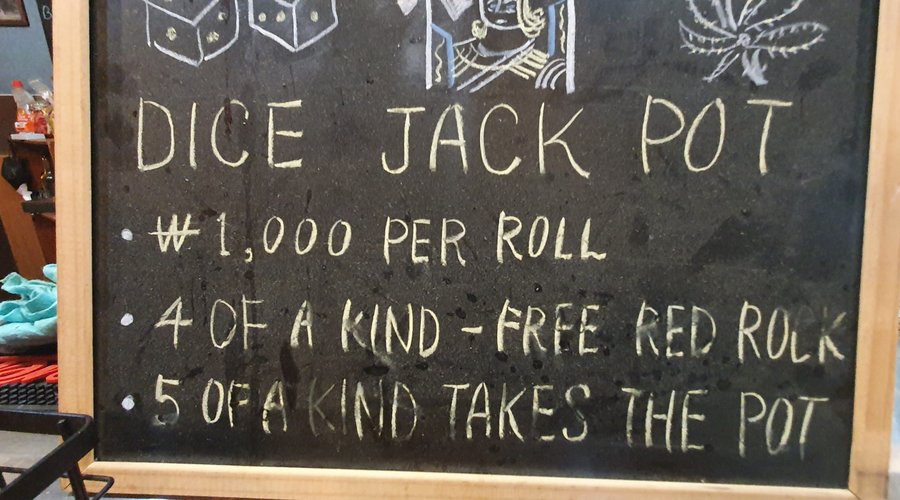 DICE JACK POT
• ₩1,000 PER ROLL
• 4 OF A KIND - FREE RED ROCK
• 5 OF A KIND TAKES THE POT